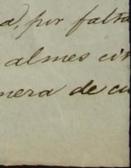 a, por falta
almes cir
nera de cu